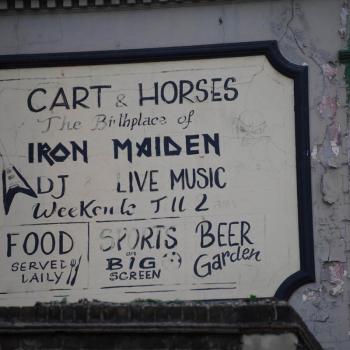 CART & HORSES
The Birthplace of
IRON MAIDEN
DJ LIVE MUSIC
Weekends Till 2
FOOD
SERVED
DAILY
SPORTS
ON
BIG
SCREEN
BEER
Garden